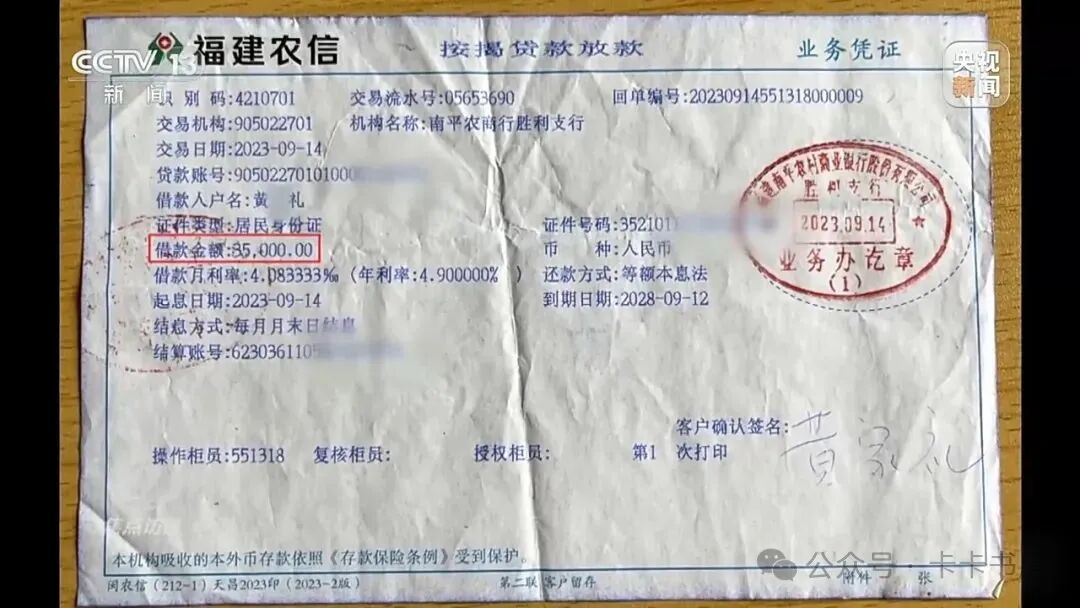 CCTV 13
新闻
央视
新闻
福建农信 按揭贷款放款 业务凭证
识 别 码:4210701 交易流水号:05653690 回单编号:20230914551318000009
交易机构:905022701 机构名称:南平农商行胜利支行
交易日期:2023-09-14
贷款账号:9050227010100
借款人户名:黄 礼
证件类型:居民身份证 证件号码:352101
借款金额:35,000.00 币 种:人民币
借款月利率:4.083333‰ (年利率:4.900000% ) 还款方式:等额本息法
起息日期:2023-09-14 到期日期:2028-09-12
结息方式:每月月末日结息
结算账号:6230361105
南平农村商业银行股份有限公司
胜利支行
2023.09.14
业务办讫章
(1)
客户确认签名:黄家礼
操作柜员:551318 复核柜员: 授权柜员: 第1 次打印
本机构吸收的本外币存款依照《存款保险条例》受到保护。
闽农信(212-1)天昌2023印(2023-2版) 第二联 客户留存 附件 张
公众号·卡卡书